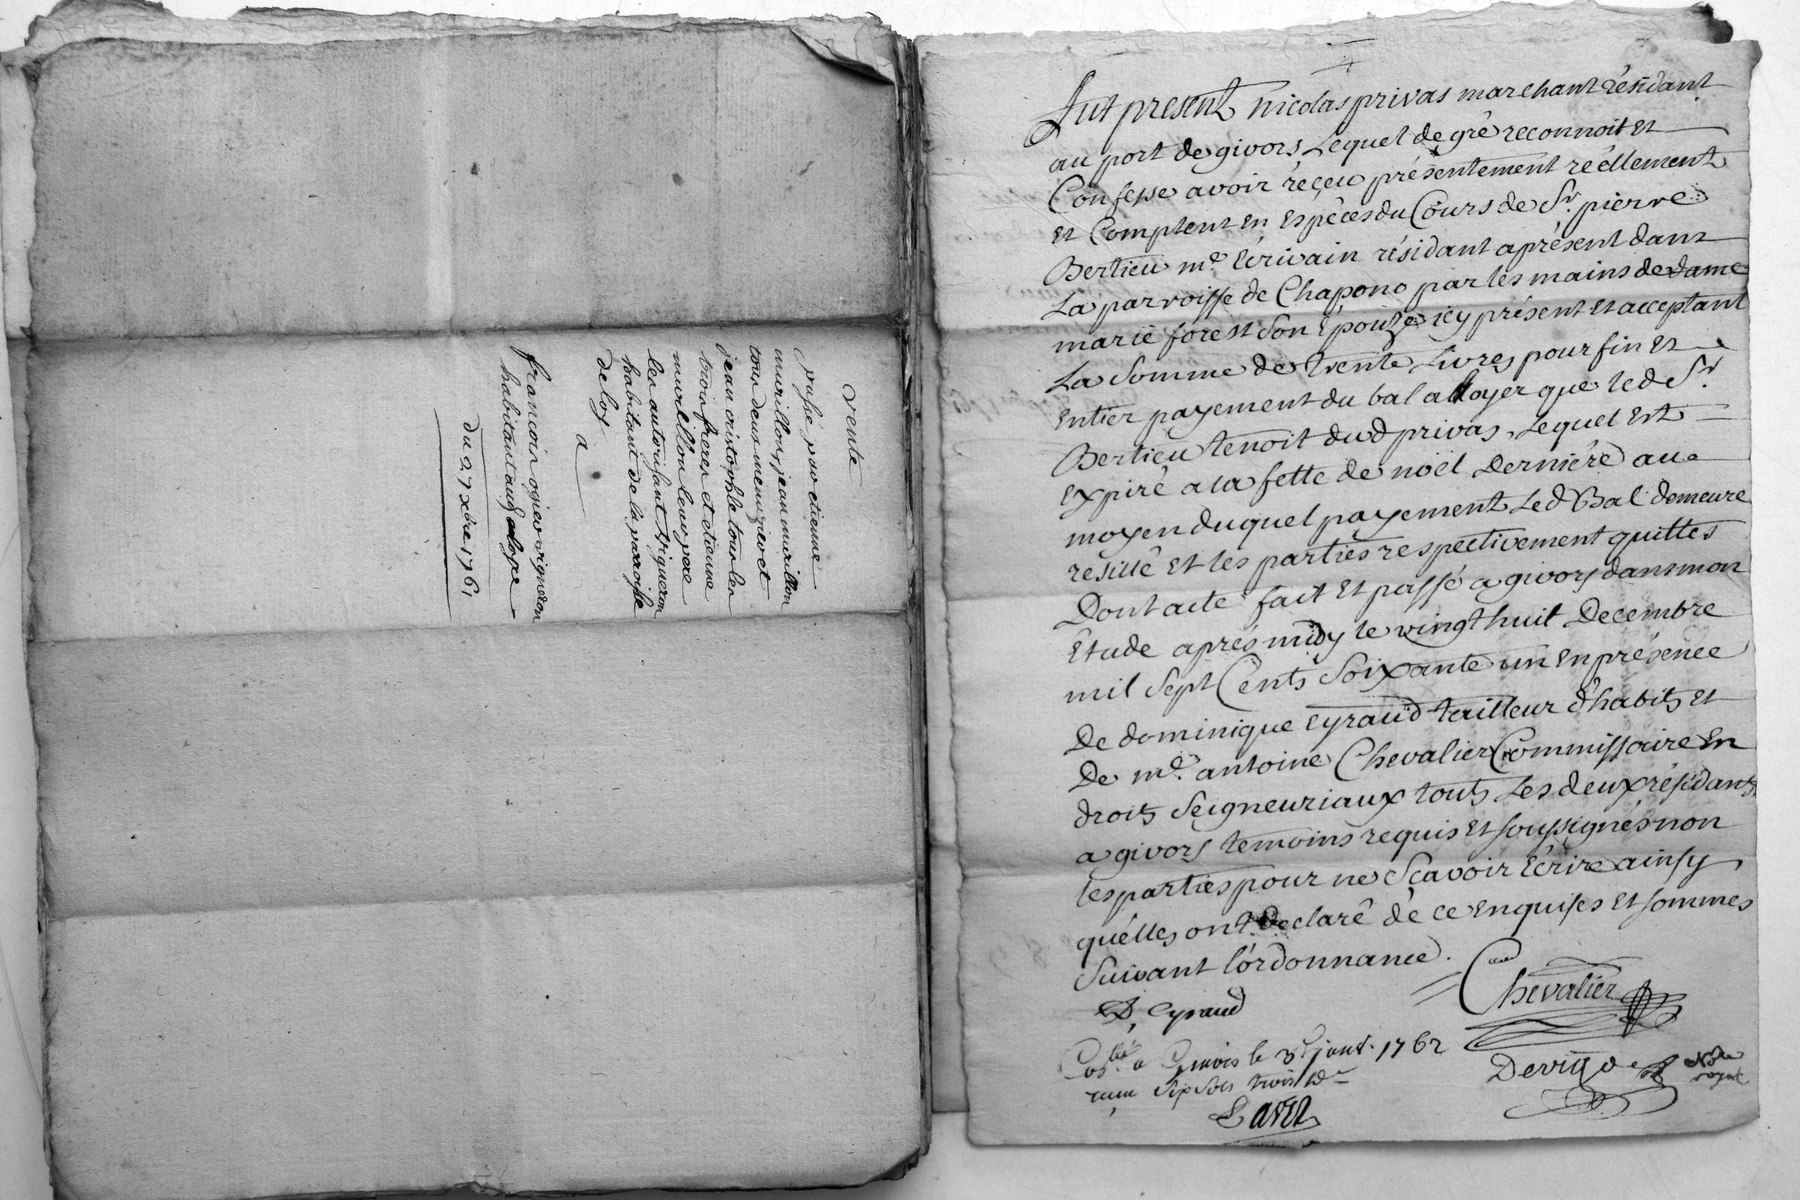 vente
passé par etienne
murillon, jean murillon
tous deus meunier et
jean cristophle tous les
trois freres et etienne
murillon leur pere
les autorisant vigneron
habitant de la parroisse
de loy
a
francois ogier vigneron
habitant aud loyre
du 27 xbre 1761
Fut present nicolas privas marchant résidant
au port de givors Lequel de gré reconnoit Et
Confesse avoir réçeu présentement réellement
Et Comptent En Espêces du Cours de Sr. pierre
Bertieu me. Ecrivain résidant aprésent dans
La parroisse de Chapono par les mains de dame
marie forest Son Epouze icy présent Et acceptant
La Somme de trente Livres pour fin Et
Entier payement du bal a Loyer que led Sr
Bertieu tenoit dud privas, Lequel Est
Expiré a la fette de noël Derniére au
moyen duquel payement Led Bal demeure
resillé Et les parties respectivement quittes
Dont acte fait Et passé a givors dans mon
Etude apres midy le vingt huit Decembre
mil Sept Cents Soixante un En présence
De dominique Eyraud tailleur d'habits Et
De me. antoine Chevalier Commissaire En
droits Seigneuriaux touts Les deux résidants
a givors temoins requis Et soussignés non
les parties pour ne Sçavoir Ecrire ainsy
qu'elles ont Declaré de ce Enquises Et sommés
Suivant l'ordonnance.
D, Eyraud
Chevalier
Collé a Givors le 3e janv. 1762
reçu six sols trois dr
Devigne Nore
royal
Lavet